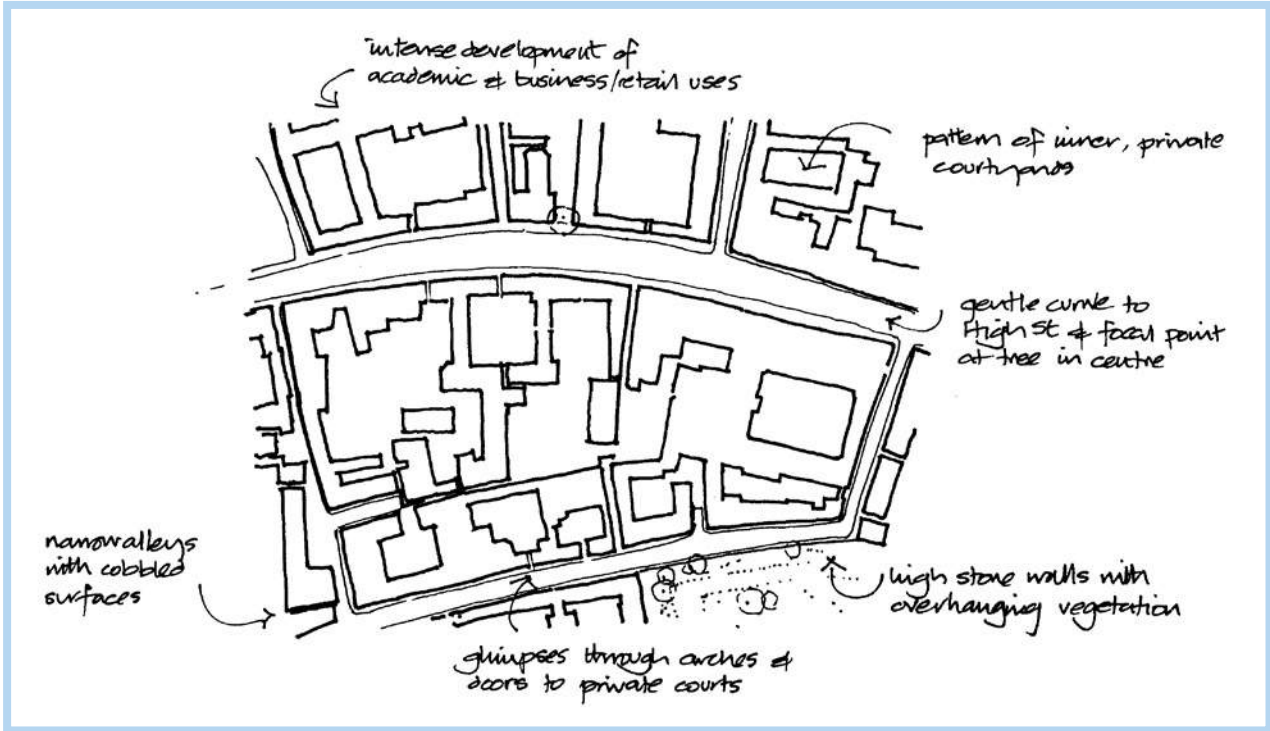 intense development of
academic & business/retail uses
pattern of inner, private
courtyards
gentle curve to
High St & focal point
at tree in centre
narrow alleys
with cobbled
surfaces
high stone walls with
overhanging vegetation
glimpses through arches &
doors to private courts